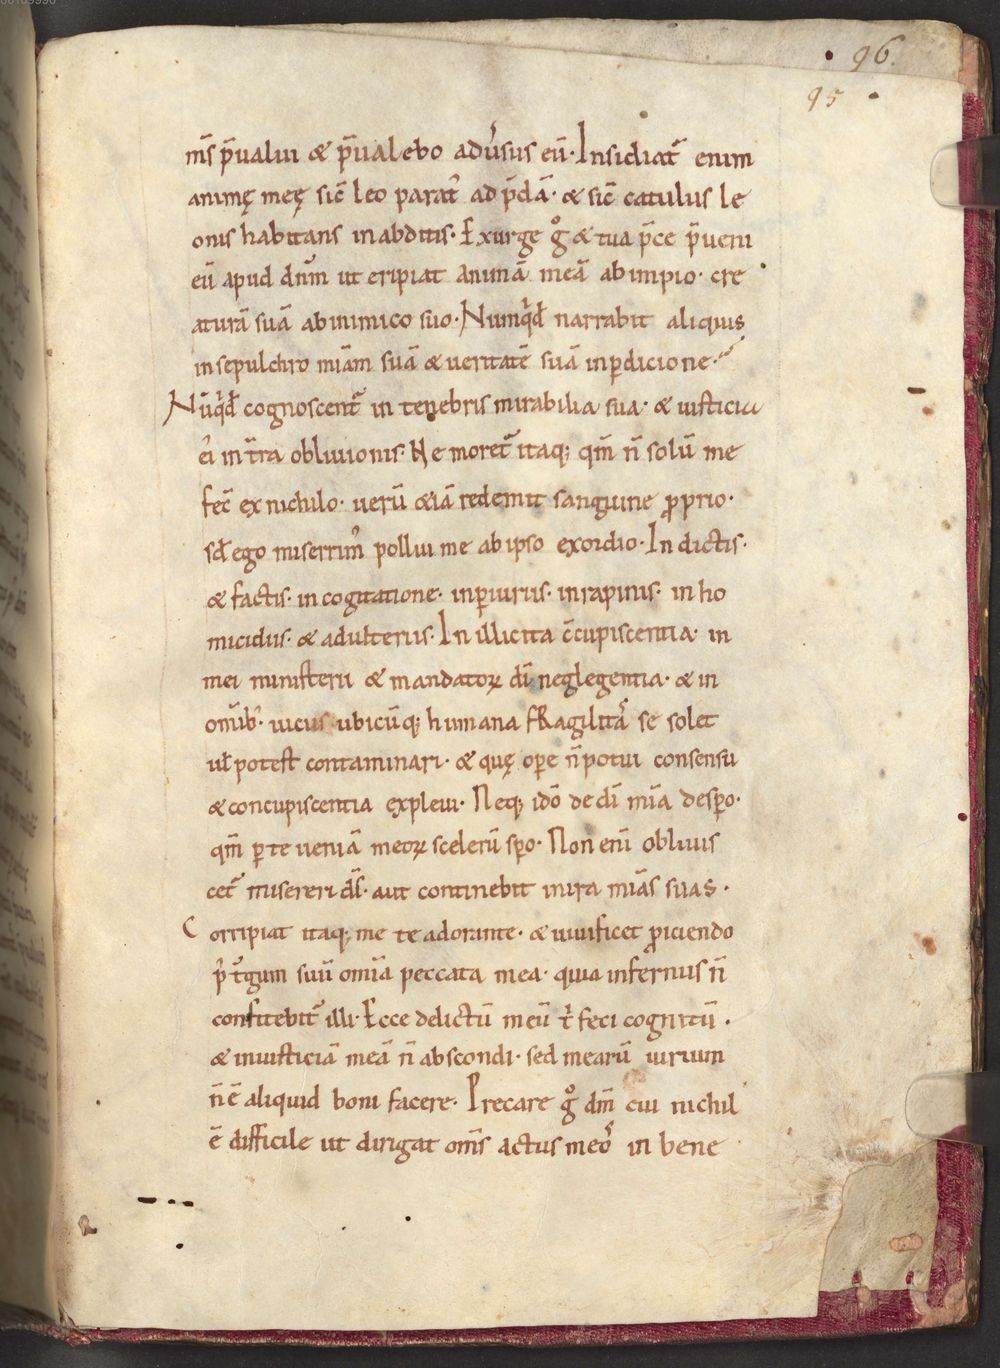 96.
95
m̄s p̄ualui & p̄ualebo adu̓sus eū· Insidiat᷑ enim
animę meę sic̄ leo parat᷑ ad p̄dā· & sic̄ catulus le
onis habitans in abditis· Exurge gͦ & tua p̄ce p̄ueni
eū apud dn̄m ut eripiat animā meā ab impio· cre
aturā suā ab inimico suo· Nūmqͥd narrabit aliquis
in sepulchro miām suā & ueritatē suā in ꝑdicione·
Nūqͥd cognoscent᷑ in tenebris mirabilia sua· & iusticia
ei᷒ in t̄ra obliuionis· Ne moret᷑ itaq; qm̄ n̄ solū me
fec̄ ex nichilo· uerū &iā redemit sanguine ꝓprio·
sꝫ ego miserrim᷒ pollui me ab ipso exordio· In dictis·
& factis· in cogitatione· in ꝑiuriis· in rapinis· in ho
micidiis· & adulteriis· In illicita c̄cupiscentia· in
mei ministerii & mandatoꝝ dī neglegentia· & in
omīb᷒· uiciis ubicūq; humana fragilitas se solet
ul̄ potest contaminari· & quę oꝑe n̄ potui consensu
& concupiscentia expleui· Neq; idō de dī mīa desꝑo·
qm̄ ꝑ te ueniā meoꝝ scelerū sꝑo· Non enī obliuis
cet᷑ misereri ds̄· aut continebit in ira mīas suas·
Corripiat itaq; me te adorante· & uiuificet ꝓiciendo
p᷒ t̄gum suū omīa peccata mea· quia infernus n̄
confitebit᷑ illi· Ecce delictū meū t̄ feci cognitū·
& iniusticiā meā n̄ abscondi· sed mearū uirium
n̄ ē aliquid boni facere· Precare gͦ dm̄ cui nichil
ē difficile ut dirigat om̄s actus meos in bene